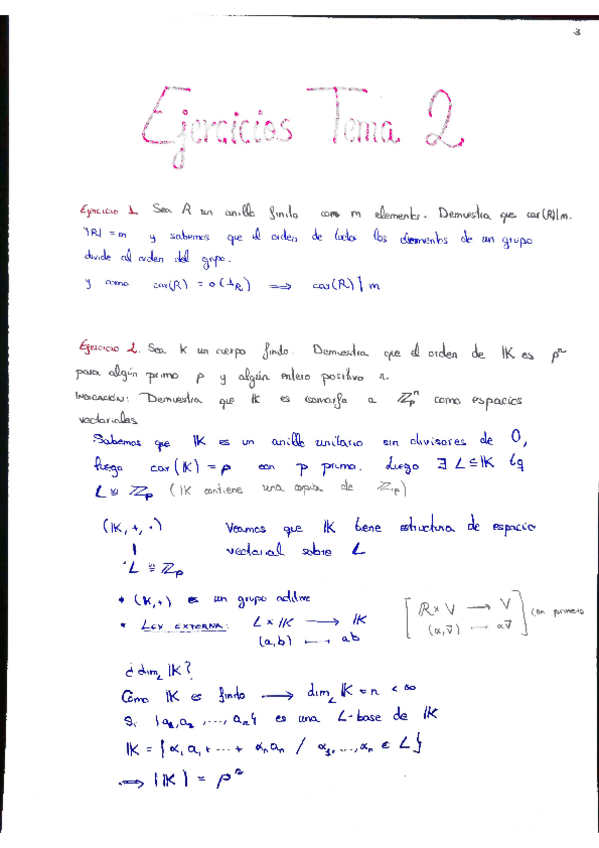 3
Ejercicios Tema 2
Ejercicio 1. Sea R un anillo finito con m elementos. Demuestra que car(R)|m.
|R| = m y sabemos que el orden de todos los elementos de un grupo
divide al orden del grupo.
y como car(R) = o(1_R) ⟹ car(R) | m
Ejercicio 2. Sea K un cuerpo finito. Demuestra que el orden de K es pⁿ
para algún primo p y algún entero positivo n.
INDICACIÓN: Demuestra que K es isomorfo a ℤₚⁿ como espacios
vectoriales
Sabemos que K es un anillo unitario sin divisores de 0,
luego car(K) = p con p primo. Luego ∃ L ⊆ K tq
L ≅ ℤₚ (K contiene una copia de ℤₚ)
(K, +, ·) Veamos que K tiene estructura de espacio
| vectorial sobre L
L ≅ ℤₚ
• (K,+) es un grupo aditivo
• LEY EXTERNA: L × K ⟶ K [ℝ × V ⟶ V] (en primero
(a,b) ⟼ ab (α,v̄) ⟼ αv̄
¿dim_L K?
Como K es finito ⟶ dim_L K = n < ∞
Si {a₁,a₂,...,aₙ} es una L-base de K
K = {α₁a₁ + ... + αₙaₙ / α₁,...,αₙ ∈ L}
⟹ |K| = pⁿ